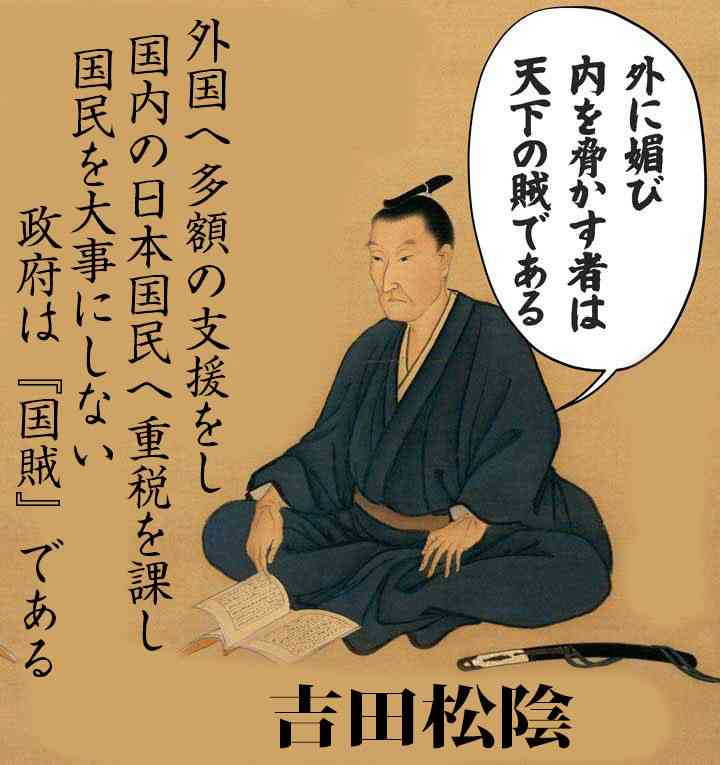 外に媚び
内を脅かす者は
天下の賊である
外国へ多額の支援をし
国内の日本国民へ重税を課し
国民を大事にしない
政府は『国賊』である
吉田松陰